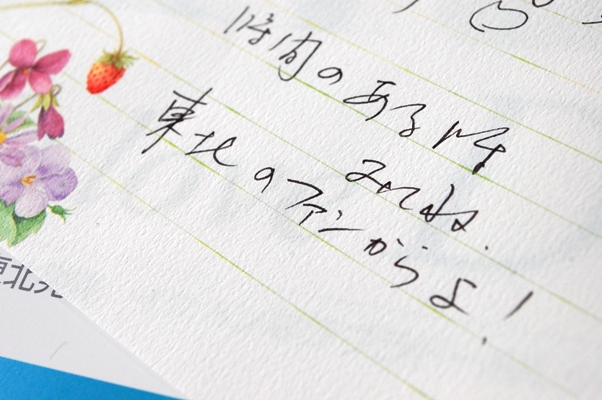 時間のある時
みてね.
東北のファンからよ!
東北